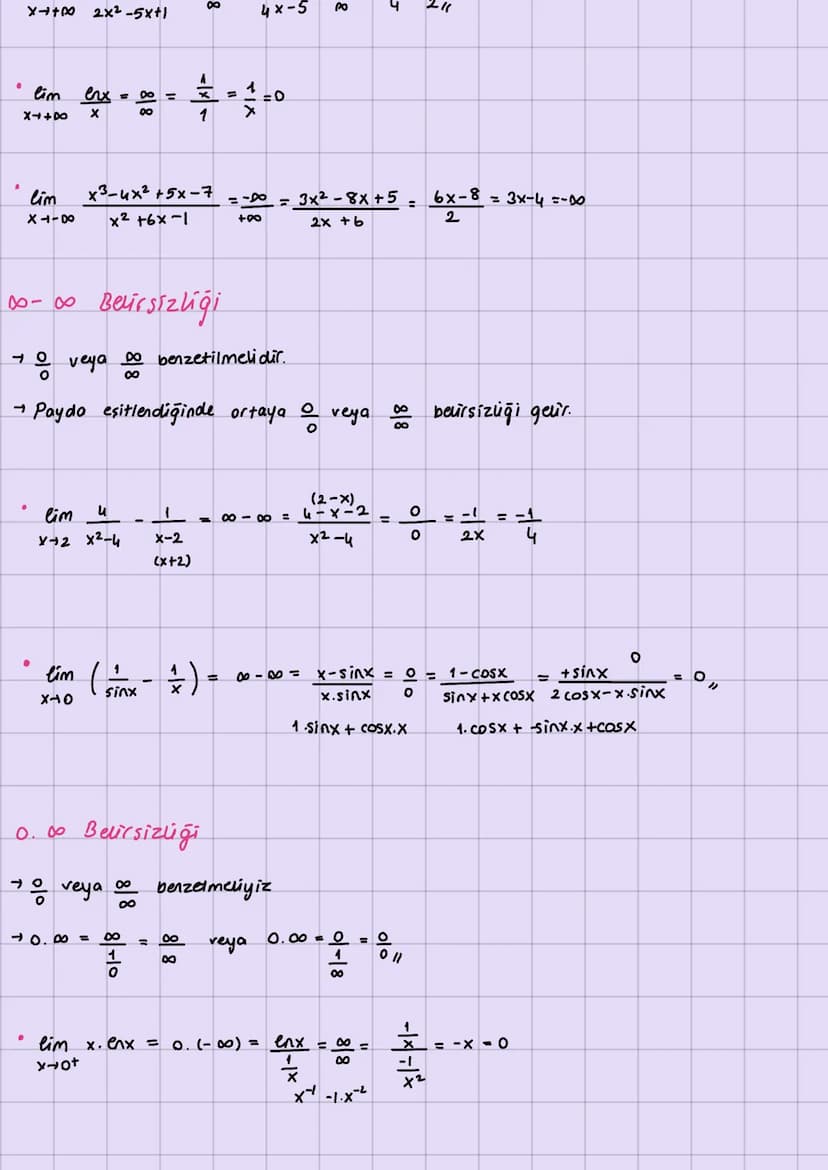 x→+∞ 2x²-5x+1 ∞ 4x-5 ∞ 4 2//
• lim x→+∞ lnx/x = ∞/∞ = (1/x)/1 = 1/x = 0
• lim x→-∞ (x³-4x²+5x-7)/(x²+6x-1) = -∞/+∞ = (3x²-8x+5)/(2x+6) = (6x-8)/2 = 3x-4 = -∞
∞-∞ Belirsizliği
→ 0/0 veya ∞/∞ benzetilmelidir.
→ Payda eşitlendiğinde ortaya 0/0 veya ∞/∞ belirsizliği gelir.
• lim x→2 4/(x²-4) - 1/(x-2) = ∞-∞ = (4-x-2)/(x²-4) = 0/0 = -1/2x = -1/4
(2-x)
(x+2)
• lim x→0 (1/sinx - 1/x) = ∞-∞ = (x-sinx)/(x.sinx) = 0/0 = (1-cosx)/(sinx+xcosx) = (+sinx)/(2cosx-x.sinx) = 0//
0
1.sinx + cosx.x 1.cosx + -sinx.x+cosx
0.∞ Belirsizliği
→ 0/0 veya ∞/∞ benzetmeliyiz
→ 0.∞ = ∞/(1/0) = ∞/∞ veya 0.∞ = 0/(1/∞) = 0/0//
• lim x→0⁺ x.lnx = 0.(-∞) = lnx/(1/x) = ∞/∞ = (1/x)/(-1/x²) = -x = 0
x⁻¹ -1.x⁻²